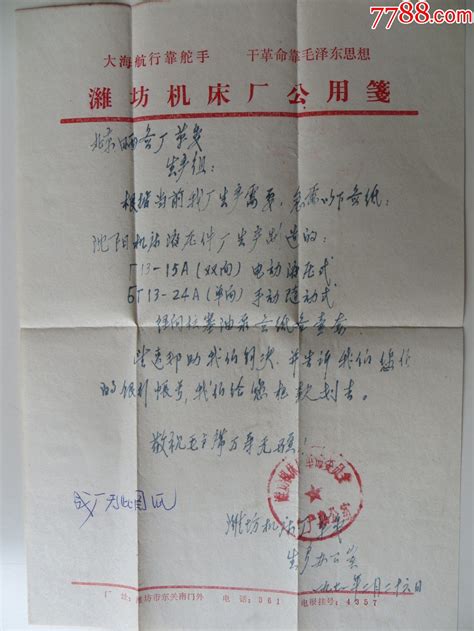 7788.com
大海航行靠舵手 干革命靠毛泽东思想
潍坊机床厂公用笺
北京 厂革委
生产组:
根据当前我厂生产需要,急需以下图纸:
沈阳机床液压件厂生产制造的:
T13-15A(双向)电动液压式
6T13-24A(单向)手动随动式
径向柱塞油泵 图纸各壹套
望速邦助我们解决,并告诉我们您们
的银行帐号,我们给您把款划去。
敬祝毛主席万寿无疆!
我厂无此图纸
潍坊机床厂革委
生产办公室
一九七一年二月二十六日
厂址:潍坊市东关南门外 电话:561 电报挂号:4357